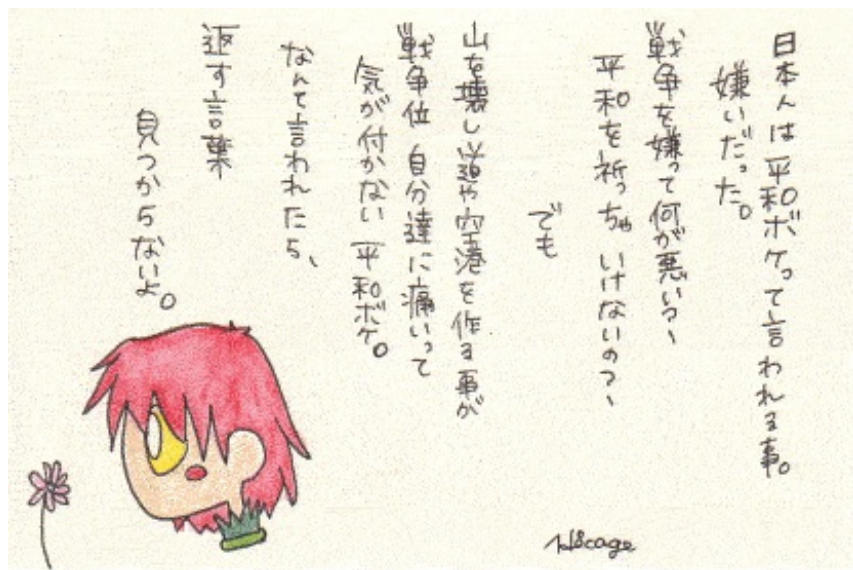 日本人は平和ボケって言われる事。
嫌いだった。
戦争を嫌って何が悪い?、
平和を祈っちゃいけないの?、
でも
山を壊し道や空港を作る事が
戦争位 自分達に痛いって
気が付かない 平和ボケ。
なんて言われたら、
返す言葉
見つからないよ。